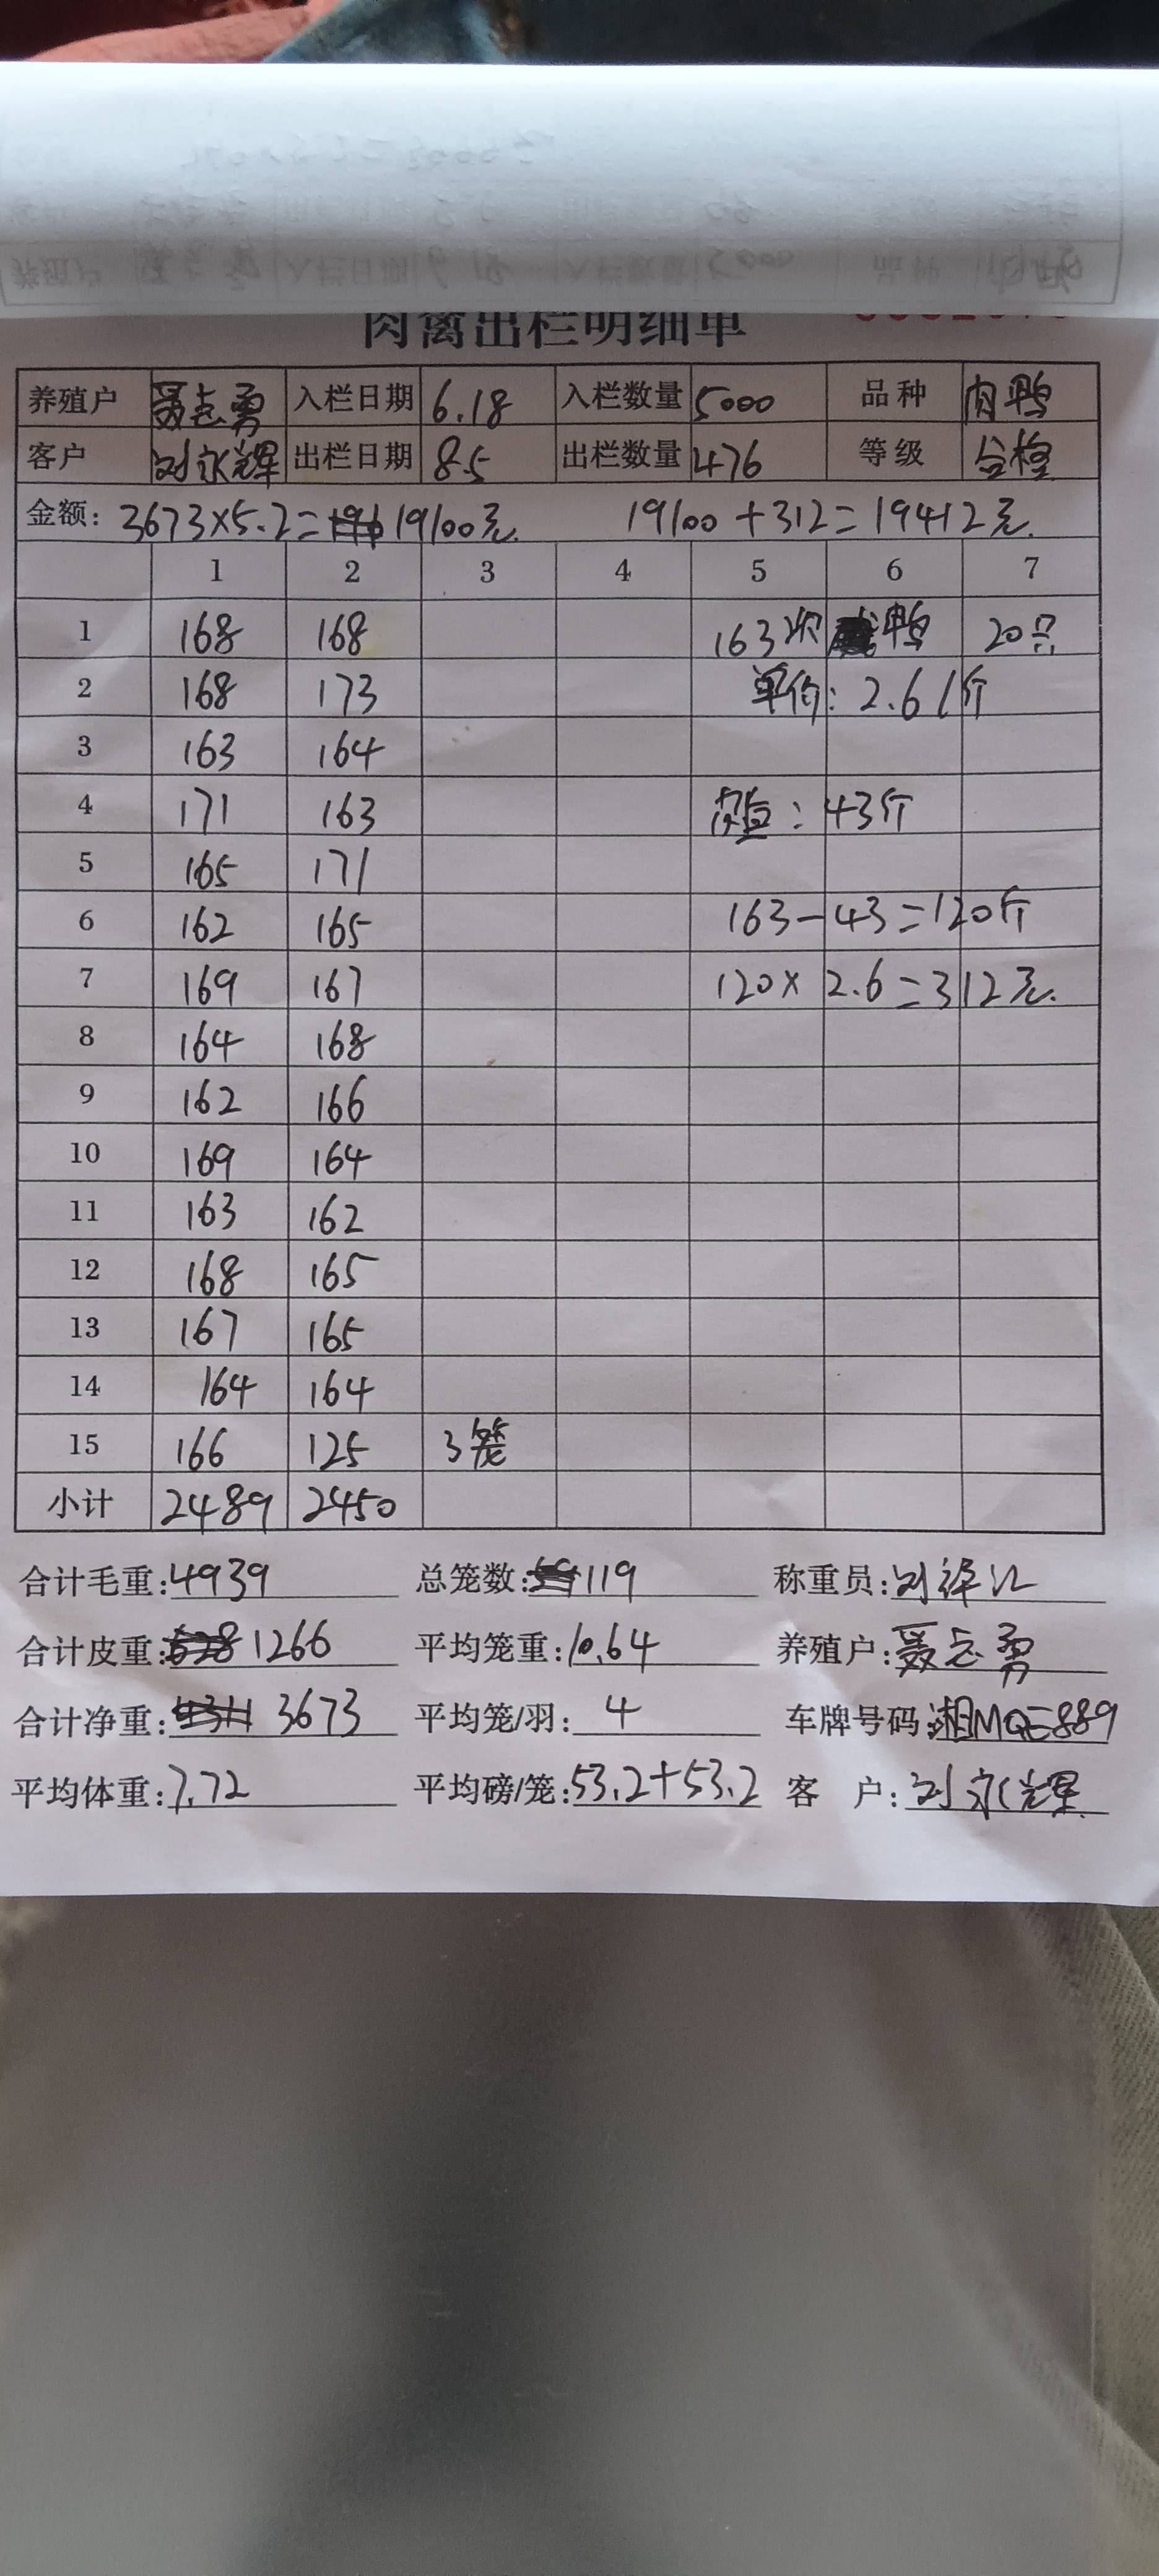 肉禽出栏明细单
养殖户 聂志勇 入栏日期 6.18 入栏数量 5000 品种 肉鸭
客户 刘永辉 出栏日期 8.5 出栏数量 476 等级 合格
金额: 3673×5.2=19100元. 19100+312=19412元.
1 2 3 4 5 6 7
1 168 168 163 次 鸭 20只
2 168 173 单价: 2.6/斤
3 163 164
4 171 163 皮重: 43斤
5 165 171
6 162 165 163-43=120斤
7 169 167 120×2.6=312元.
8 164 168
9 162 166
10 169 164
11 163 162
12 168 165
13 167 165
14 164 164
15 166 125 3笼
小计 2489 2450
合计毛重:4939 总笼数:119 称重员:刘
合计皮重:1266 平均笼重:10.64 养殖户:聂志勇
合计净重:3673 平均笼/羽: 4 车牌号码:湘MQE889
平均体重:7.72 平均磅/笼:53.2+53.2 客 户:刘永辉